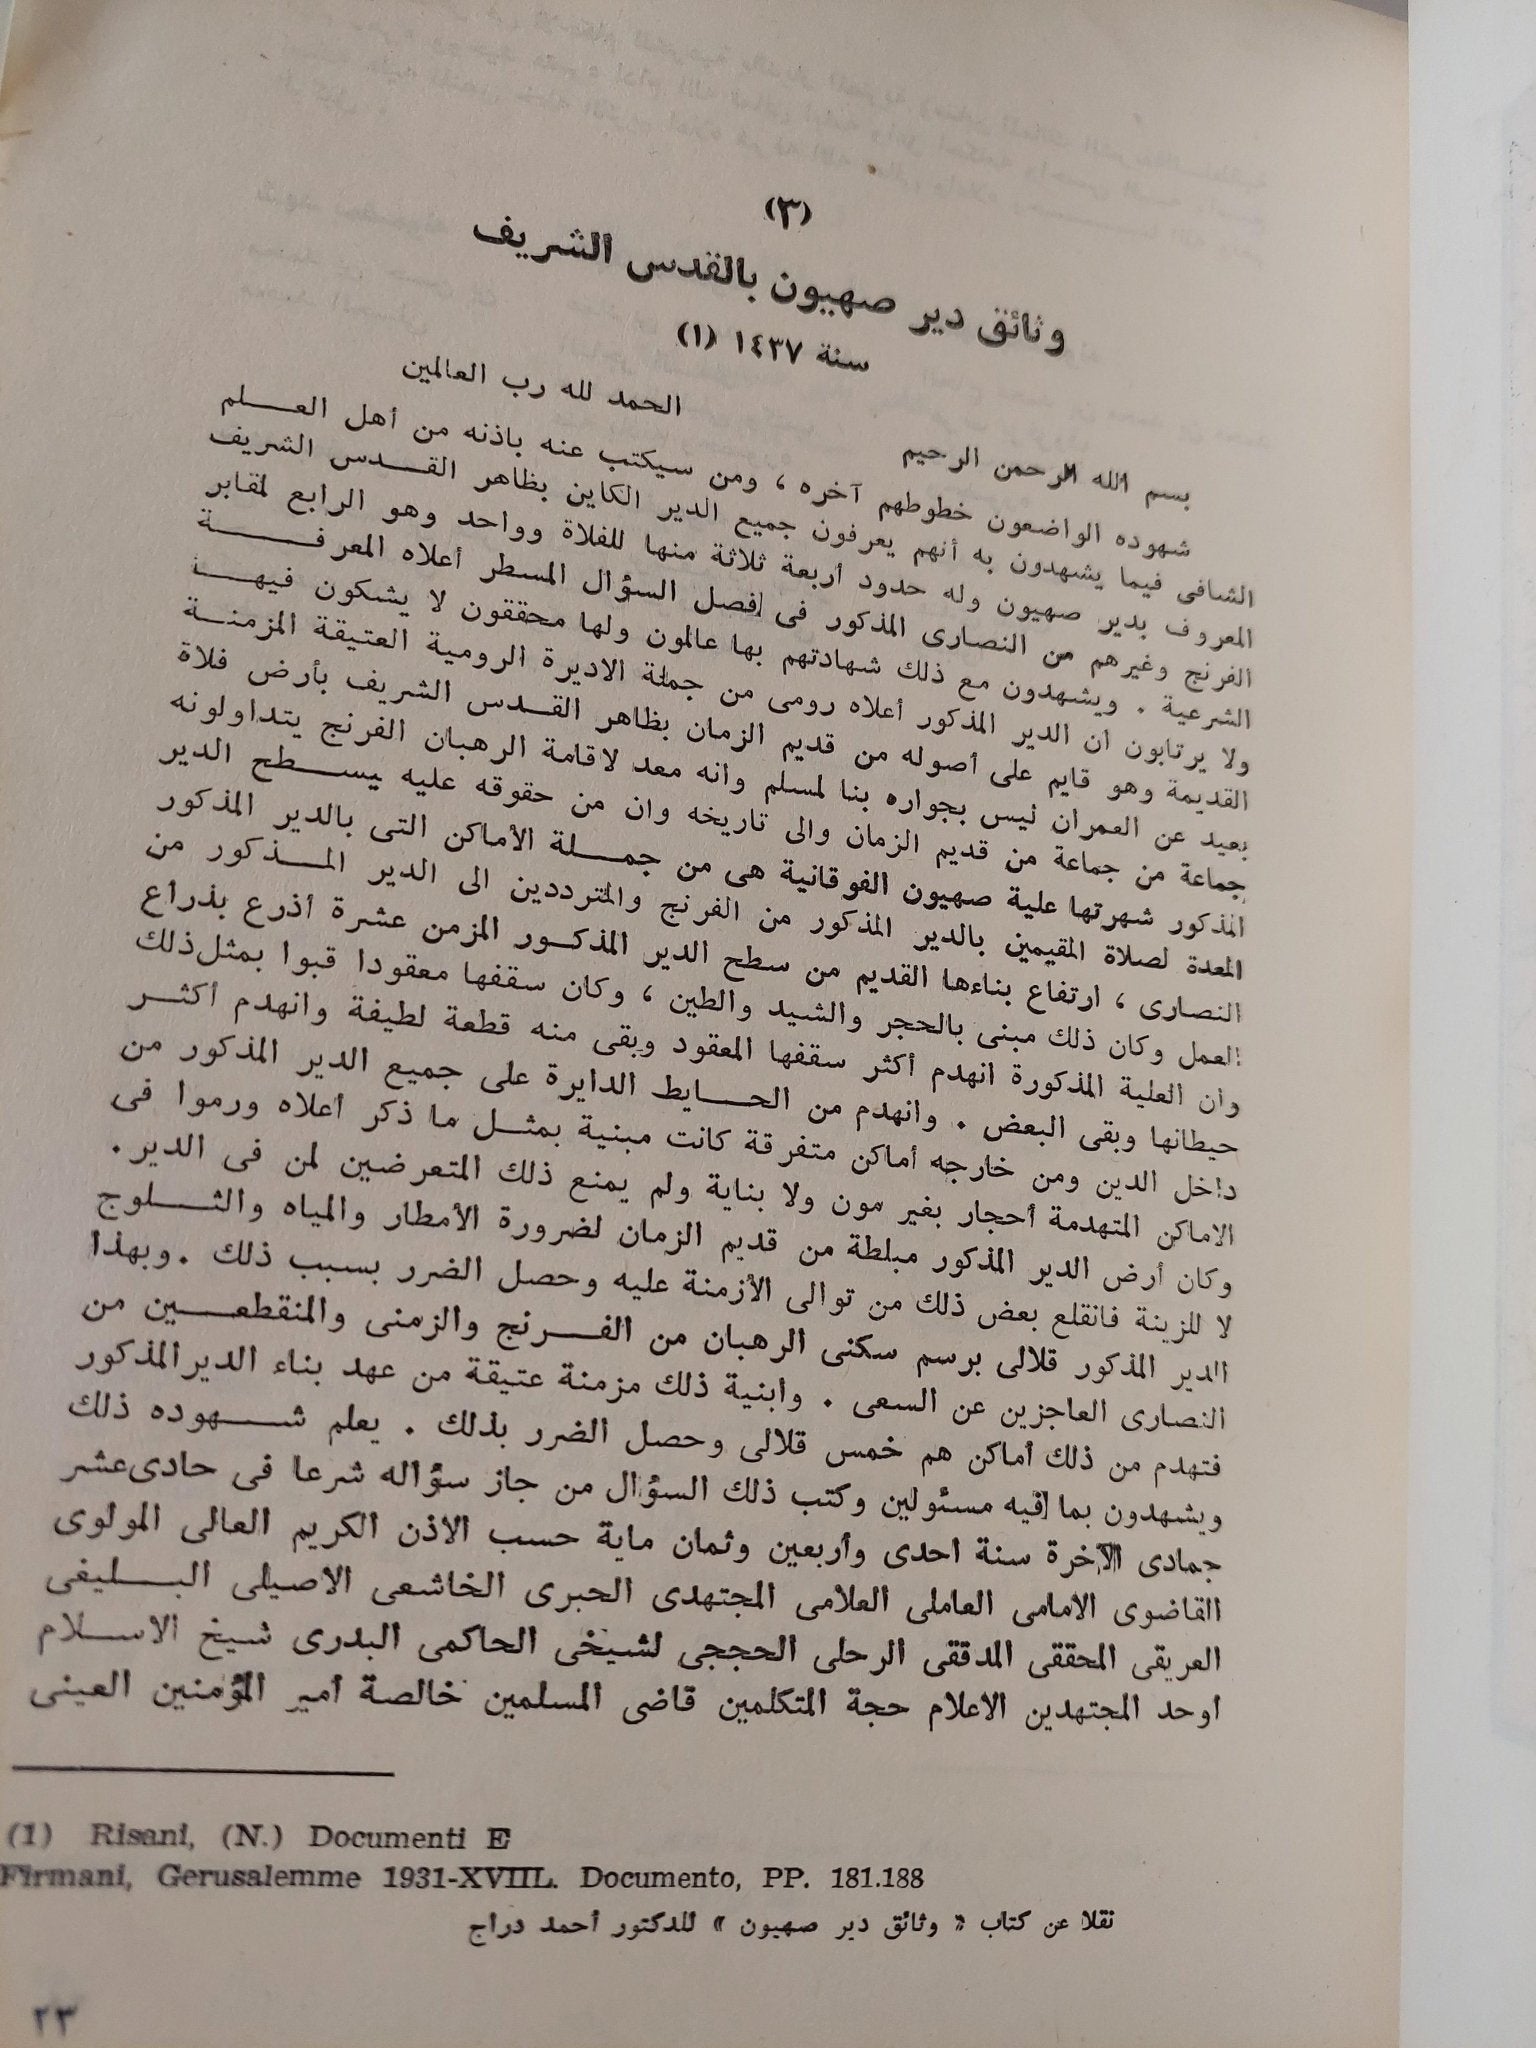 (٣)
وثائق دير صهيون بالقدس الشريف
سنة ١٤٣٧ (١)
الحمد لله رب العالمين
بسم الله الرحمن الرحيم
شهوده الواضعون خطوطهم آخره ، ومن سيكتب عنه باذنه من أهل العلم
الشافى فيما يشهدون به أنهم يعرفون جميع الدير الكاين بظاهر القدس الشريف
المعروف بدير صهيون وله حدود أربعة ثلاثة منها للفلاة وواحد وهو الرابع لمقابر
الفرنج وغيرهم من النصارى المذكور فى فصل السؤال المسطر أعلاه المعرفة
الشرعية . ويشهدون مع ذلك شهادتهم بها عالمون ولها محققون لا يشكون فيها
ولا يرتابون ان الدير المذكور أعلاه رومى من جملة الاديرة الرومية العتيقة المزمنة
القديمة وهو قايم على أصوله من قديم الزمان بظاهر القدس الشريف بأرض فلاة
بعيد عن العمران ليس بجواره بنا لمسلم وانه معد لاقامة الرهبان الفرنج يتداولونه
جماعة من جماعة من قديم الزمان والى تاريخه وان من حقوقه عليه يسطح الدير
المذكور شهرتها علية صهيون الفوقانية هى من جملة الأماكن التى بالدير المذكور
المعدة لصلاة المقيمين بالدير المذكور من الفرنج والمترددين الى الدير المذكور من
النصارى ، ارتفاع بناءها القديم من سطح الدير المذكور المزمن عشرة أذرع بذراع
العمل وكان ذلك مبنى بالحجر والشيد والطين ، وكان سقفها معقودا قبوا بمثل ذلك
وان العلية المذكورة انهدم أكثر سقفها المعقود وبقى منه قطعة لطيفة وانهدم أكثر
حيطانها وبقى البعض . وانهدم من الحايط الدايرة على جميع الدير المذكور من
داخل الدين ومن خارجه أماكن متفرقة كانت مبنية بمثل ما ذكر أعلاه ورموا فى
الاماكن المتهدمة أحجار بغير مون ولا بناية ولم يمنع ذلك المتعرضين لمن فى الدير.
وكان أرض الدير المذكور مبلطة من قديم الزمان لضرورة الأمطار والمياه والثلوج
لا للزينة فانقلع بعض ذلك من توالى الأزمنة عليه وحصل الضرر بسبب ذلك . وبهذا
الدير المذكور قلالى برسم سكنى الرهبان من الفرنج والزمنى والمنقطعين من
النصارى العاجزين عن السعى . وأبنية ذلك مزمنة عتيقة من عهد بناء الدير المذكور
فتهدم من ذلك أماكن هم خمس قلالى وحصل الضرر بذلك . يعلم شهوده ذلك
ويشهدون بما فيه مسئولين وكتب ذلك السؤال من جاز سؤاله شرعا فى حادى عشر
جمادى الآخرة سنة احدى وأربعين وثمان ماية حسب الاذن الكريم العالى المولوى
القاضوى الامامى العاملى العلامى المجتهدى الحبرى الخاشعى الاصيلى البليغى
العريقى المحققى المدققى الرحلى الحججى لشيخى الحاكمى البدرى شيخ الاسلام
اوحد المجتهدين الاعلام حجة المتكلمين قاضى المسلمين خالصة أمير المؤمنين العينى
(1) Risani, (N.) Documenti E
Firmani, Gerusalemme 1931-XVIIL. Documento, PP. 181.188
نقلا عن كتاب « وثائق دير صهيون » للدكتور أحمد دراج
٢٣